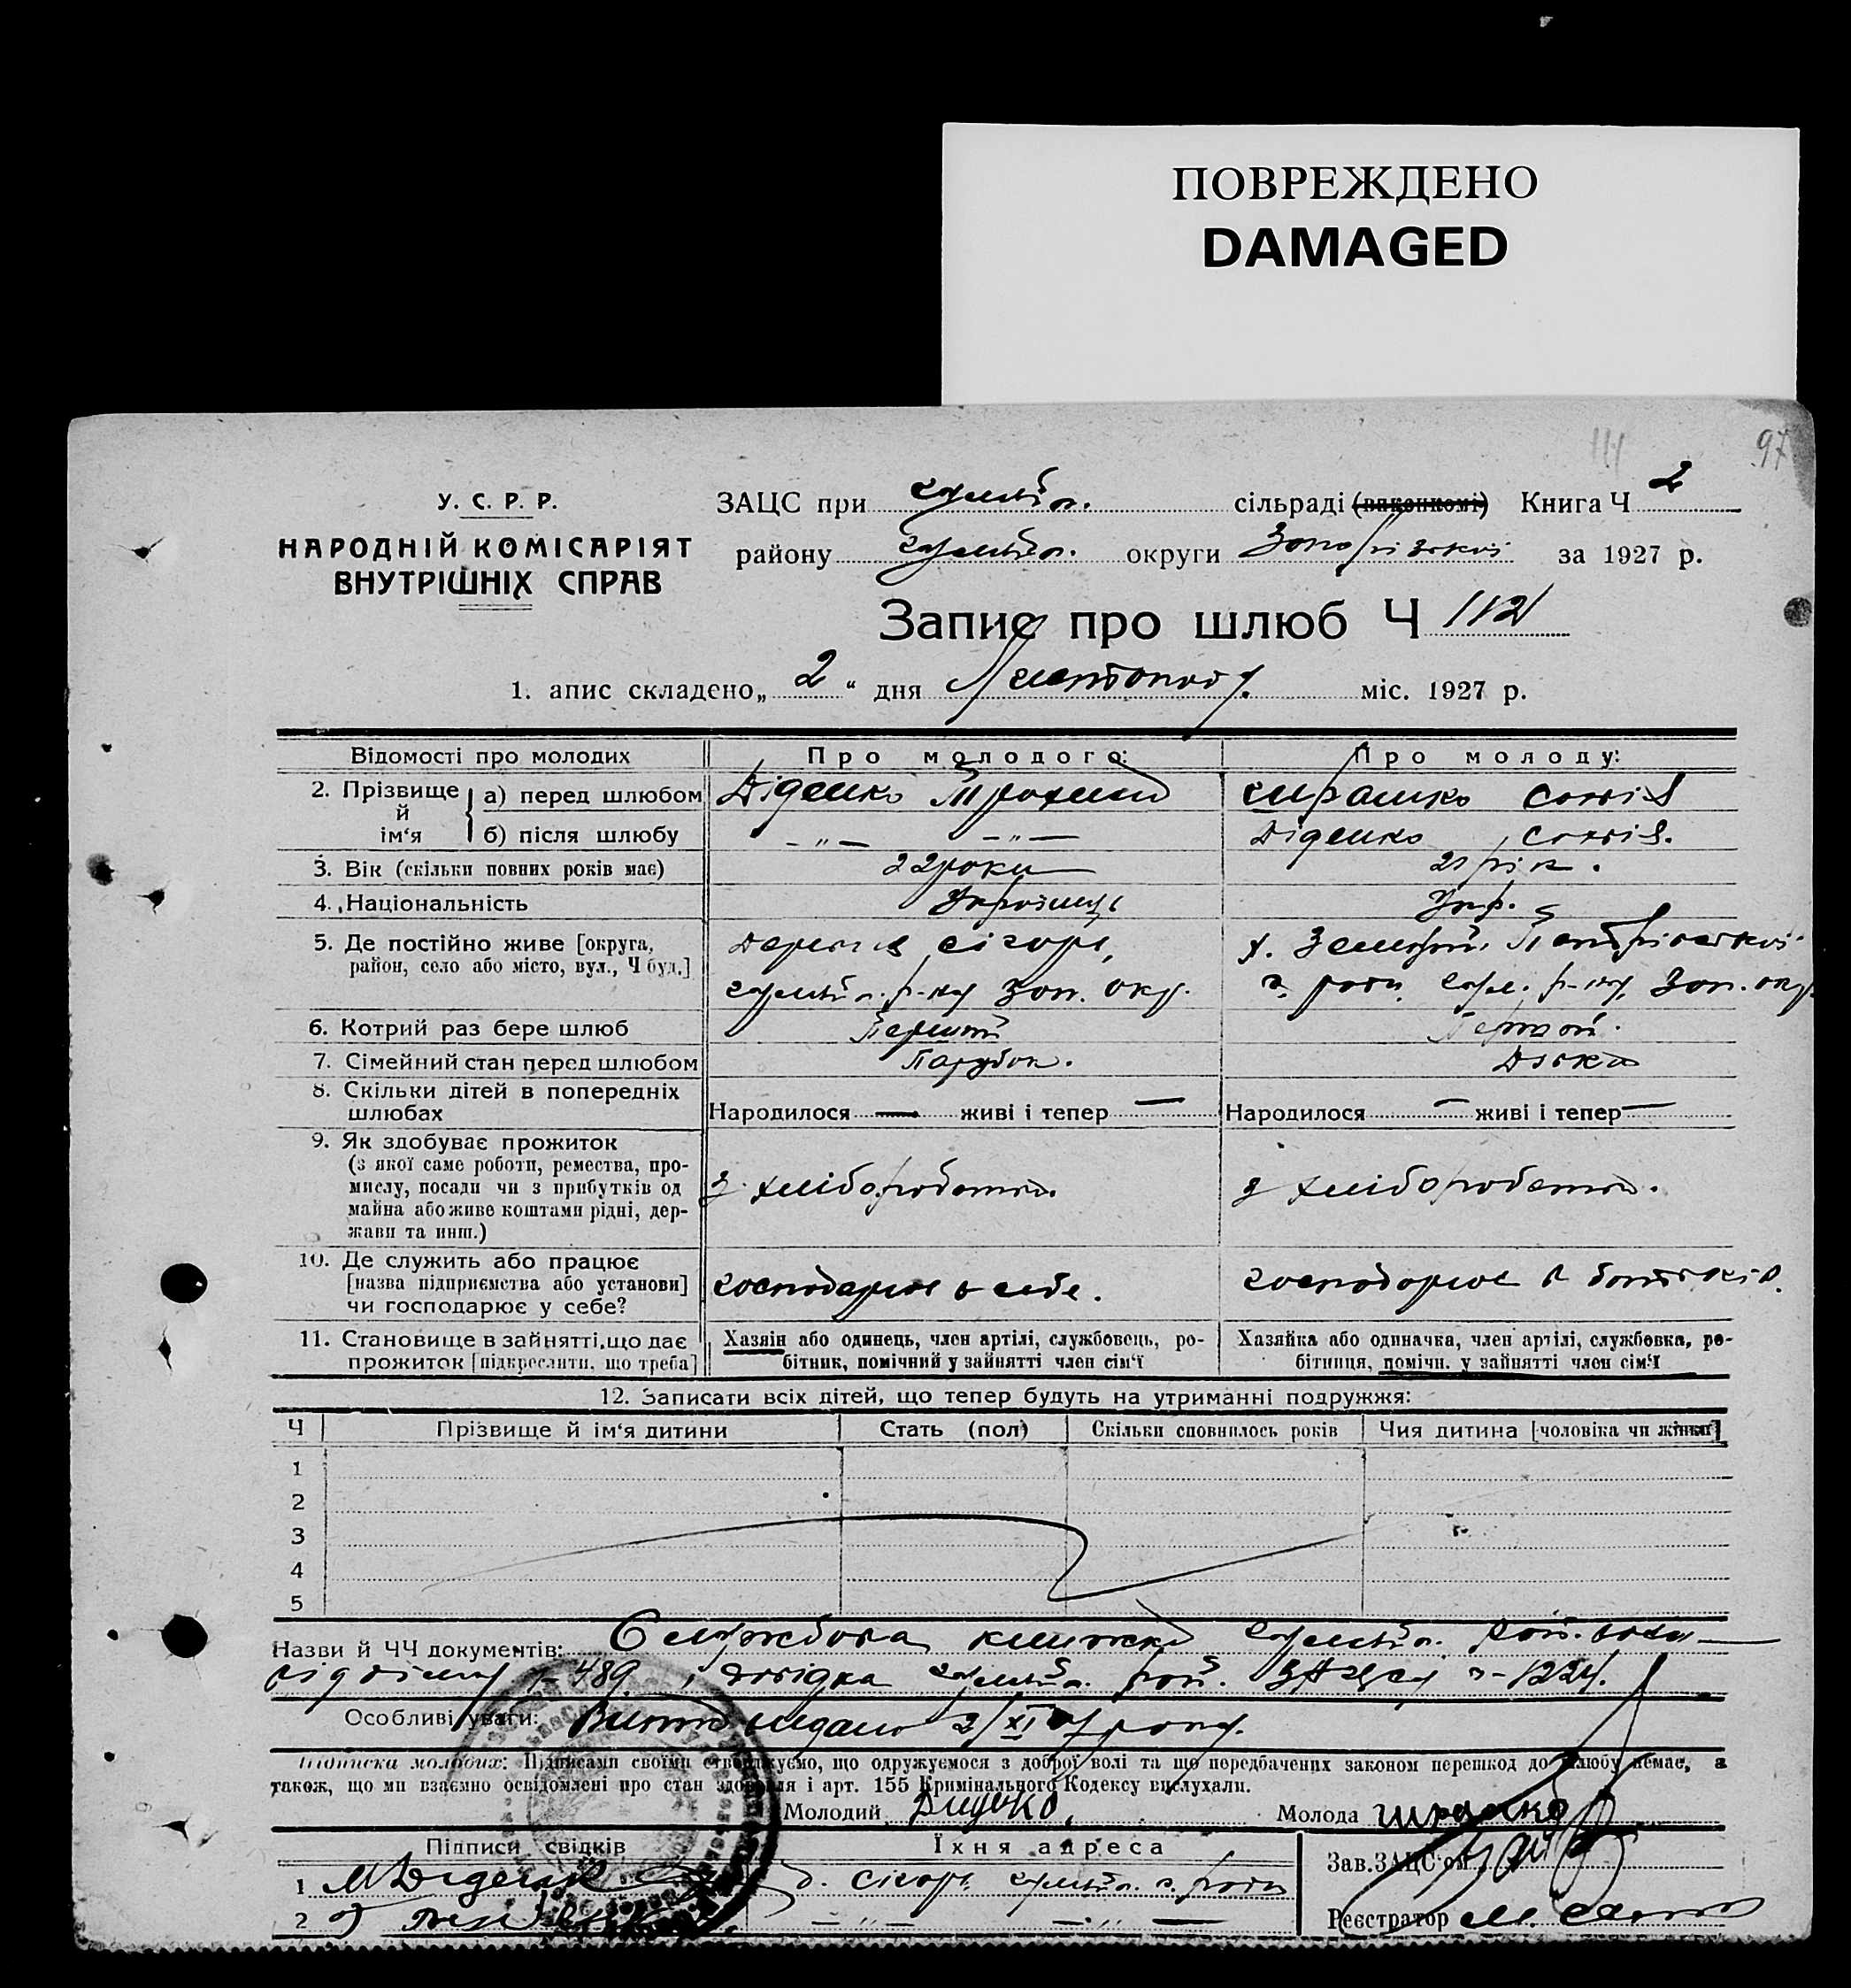 ПОВРЕЖДЕНО
DAMAGED
97
У. С. Р. Р.
НАРОДНІЙ КОМІСАРІЯТ
ВНУТРІШНІХ СПРАВ
ЗАЦС при сільраді (виконкомі) Книга Ч 2
району округи за 1927 р.
Запис про шлюб Ч 112
1. апис складено „ 2 “ дня Листопада міс. 1927 р.
Відомості про молодих Про молодого: Про молоду:
2. Прізвище й ім‘я а) перед шлюбом Діденко Трохим Софія
б) після шлюбу –„– –„– Діденко Софія.
3. Вік (скільки повних років має) 22 роки 21 рік.
4. Національність Українець Укр.
5. Де постійно живе [округа, район, село або місто, вул., Ч буд.]
р-ну Зап. окр. р-ну, Зап. окр.
6. Котрий раз бере шлюб Перший Перший.
7. Сімейний стан перед шлюбом Парубок. Дівка
8. Скільки дітей в попередніх шлюбах Народилося — живі і тепер — Народилося — живі і тепер —
9. Як здобуває прожиток
(з якої саме роботи, ремества, про-
мислу, посади чи з прибутків од
майна або живе коштами рідні, дер-
жави та инш.)
з хліборобства. з хліборобства.
10. Де служить або працює
[назва підприємства або установи]
чи господарює у себе?
господарює в себе. господарює в батьків.
11. Становище в зайнятті, що дає
прожиток [підкреслити, що треба]
Хазяїн або одинець, член артілі, службовець, ро-
бітник, помічний у зайнятті член сім‘ї
Хазяйка або одиначка, член артілі, службовка, ро-
бітниця, помічн. у зайнятті член сім‘ї
12. Записати всіх дітей, що тепер будуть на утриманні подружжя:
Ч Прізвище й ім‘я дитини Стать (пол) Скільки сповнилось років Чия дитина [чоловіка чи жінки]
1
2
3
4
5
Назви й ЧЧ документів: Службова книжка
489, довідка ЗАЦСу 1224.
Особливі уваги: видано 2/XI
Підписка молодих: Підписами своїми стверджуємо, що одружуємося з доброї волі та що передбачених законом перешкод до шлюбу немає, а
також, що ми взаємно освідомлені про стан здоровля і арт. 155 Кримінального Кодексу вислухали.
Молодий Молода
Підписи свідків Їхня адреса
Зав. ЗАЦС‘ом
1
2 –„– –„–
Реєстратор